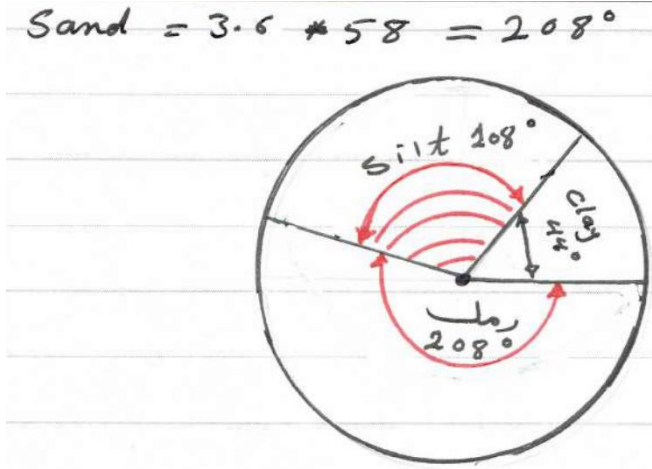 Sand = 3.6 * 58 = 208°
silt 108°
clay
44°
رمل
208°